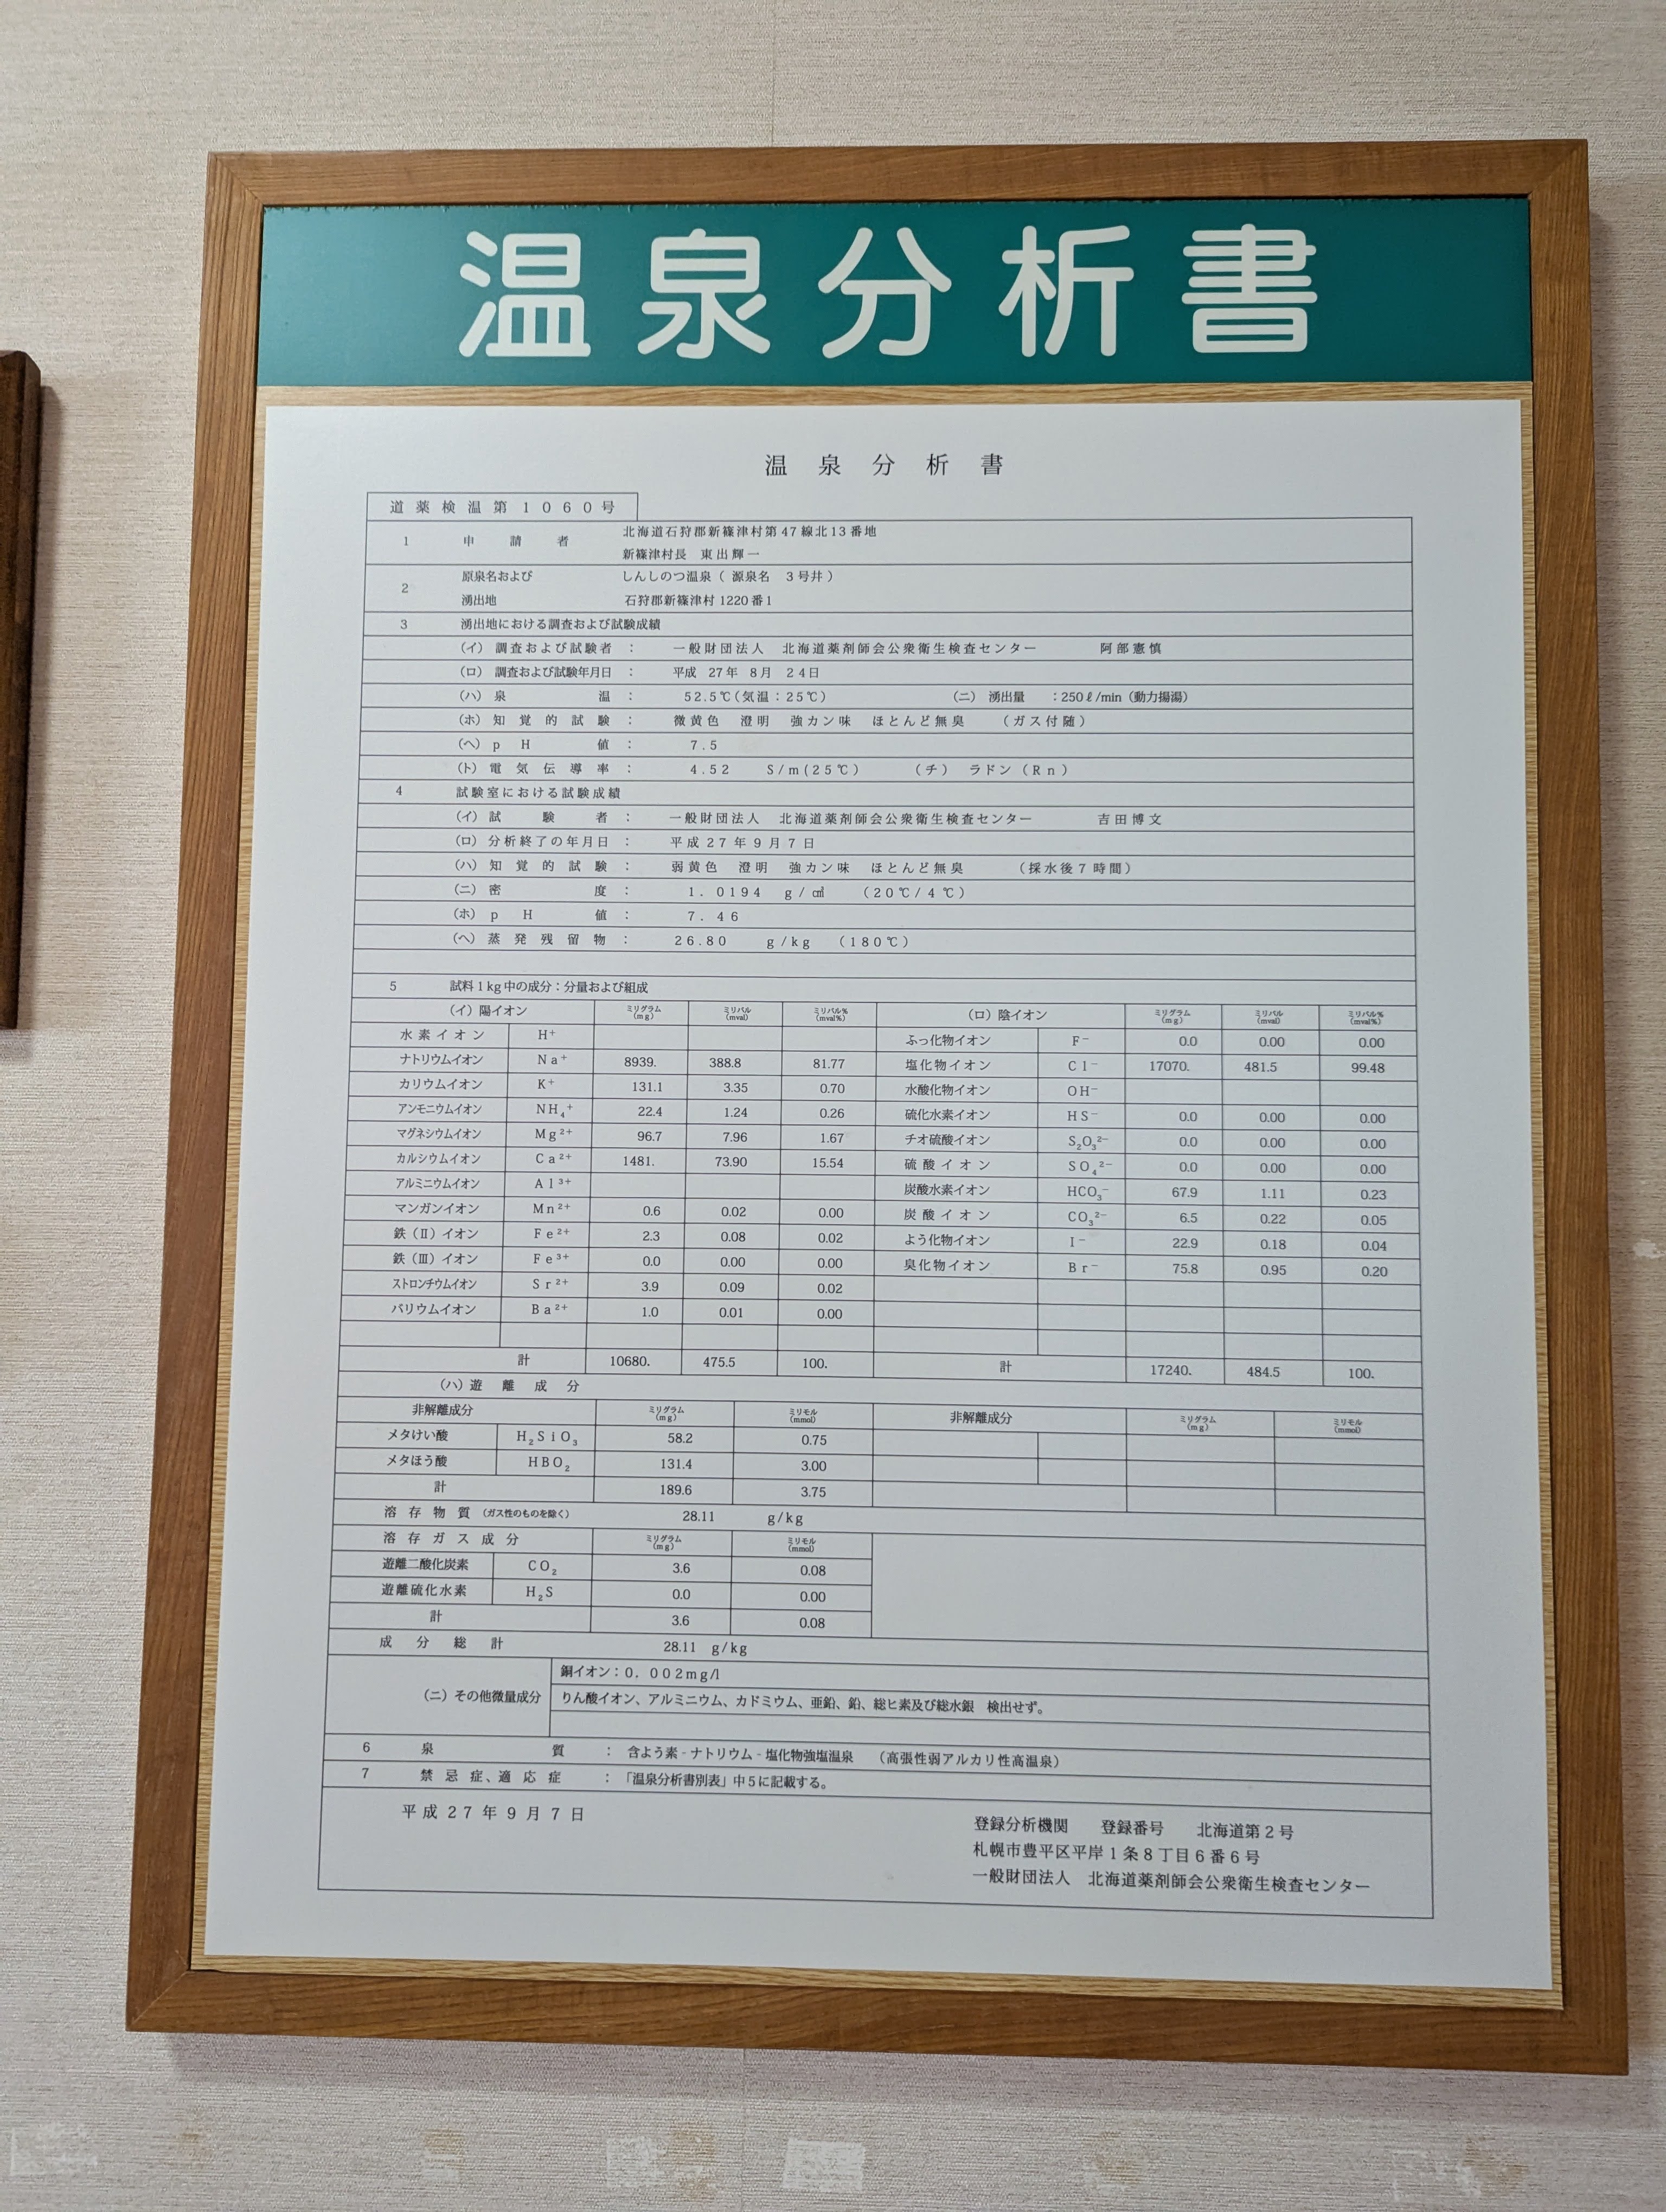 温泉分析書
温泉分析書
道薬検温第1060号
1 申請者 北海道石狩郡新篠津村第47線北13番地
新篠津村長 東出輝一
2 原泉名および しんしのつ温泉（ 源泉名 3号井 ）
湧出地 石狩郡新篠津村1220番1
3 湧出地における調査および試験成績
（イ）調査および試験者 ： 一般財団法人 北海道薬剤師会公衆衛生検査センター 阿部憲慎
（ロ）調査および試験年月日 ： 平成 27年 8月 24日
（ハ）泉温 ： 52.5℃(気温：25℃) （ニ）湧出量 ：250ℓ/min（動力揚湯）
（ホ）知覚的試験 ： 微黄色 澄明 強カン味 ほとんど無臭 （ガス付随）
（ヘ）pH値 ： 7.5
（ト）電気伝導率 ： 4.52 S/m(25℃) （チ）ラドン（Rn）
4 試験室における試験成績
（イ）試験者 ： 一般財団法人 北海道薬剤師会公衆衛生検査センター 吉田博文
（ロ）分析終了の年月日 ： 平成27年9月7日
（ハ）知覚的試験 ： 弱黄色 澄明 強カン味 ほとんど無臭 （採水後7時間）
（ニ）密度 ： 1.0194 g/㎤ （20℃/4℃）
（ホ）pH値 ： 7.46
（ヘ）蒸発残留物 ： 26.80 g/kg （180℃）
5 試料1kg中の成分：分量および組成
（イ）陽イオン ミリグラム(mg) ミリバル(mval) ミリバル%(mval%) （ロ）陰イオン ミリグラム(mg) ミリバル(mval) ミリバル%(mval%)
水素イオン H⁺ ふっ化物イオン F⁻ 0.0 0.00 0.00
ナトリウムイオン Na⁺ 8939. 388.8 81.77 塩化物イオン Cl⁻ 17070. 481.5 99.48
カリウムイオン K⁺ 131.1 3.35 0.70 水酸化物イオン OH⁻
アンモニウムイオン NH₄⁺ 22.4 1.24 0.26 硫化水素イオン HS⁻ 0.0 0.00 0.00
マグネシウムイオン Mg²⁺ 96.7 7.96 1.67 チオ硫酸イオン S₂O₃²⁻ 0.0 0.00 0.00
カルシウムイオン Ca²⁺ 1481. 73.90 15.54 硫酸イオン SO₄²⁻ 0.0 0.00 0.00
アルミニウムイオン Al³⁺ 炭酸水素イオン HCO₃⁻ 67.9 1.11 0.23
マンガンイオン Mn²⁺ 0.6 0.02 0.00 炭酸イオン CO₃²⁻ 6.5 0.22 0.05
鉄（Ⅱ）イオン Fe²⁺ 2.3 0.08 0.02 よう化物イオン I⁻ 22.9 0.18 0.04
鉄（Ⅲ）イオン Fe³⁺ 0.0 0.00 0.00 臭化物イオン Br⁻ 75.8 0.95 0.20
ストロンチウムイオン Sr²⁺ 3.9 0.09 0.02
バリウムイオン Ba²⁺ 1.0 0.01 0.00
計 10680. 475.5 100. 計 17240. 484.5 100.
（ハ）遊離成分
非解離成分 ミリグラム(mg) ミリモル(mmol) 非解離成分 ミリグラム(mg) ミリモル(mmol)
メタけい酸 H₂SiO₃ 58.2 0.75
メタほう酸 HBO₂ 131.4 3.00
計 189.6 3.75
溶存物質（ガス性のものを除く） 28.11 g/kg
溶存ガス成分 ミリグラム(mg) ミリモル(mmol)
遊離二酸化炭素 CO₂ 3.6 0.08
遊離硫化水素 H₂S 0.0 0.00
計 3.6 0.08
成分総計 28.11 g/kg
銅イオン：0.002mg/l
（ニ）その他微量成分 りん酸イオン、アルミニウム、カドミウム、亜鉛、鉛、総ヒ素及び総水銀 検出せず。
6 泉質 ： 含よう素‐ナトリウム‐塩化物強塩温泉 （高張性弱アルカリ性高温泉）
7 禁忌症、適応症 ： 「温泉分析書別表」中5に記載する。
平成27年9月7日
登録分析機関 登録番号 北海道第2号
札幌市豊平区平岸1条8丁目6番6号
一般財団法人 北海道薬剤師会公衆衛生検査センター